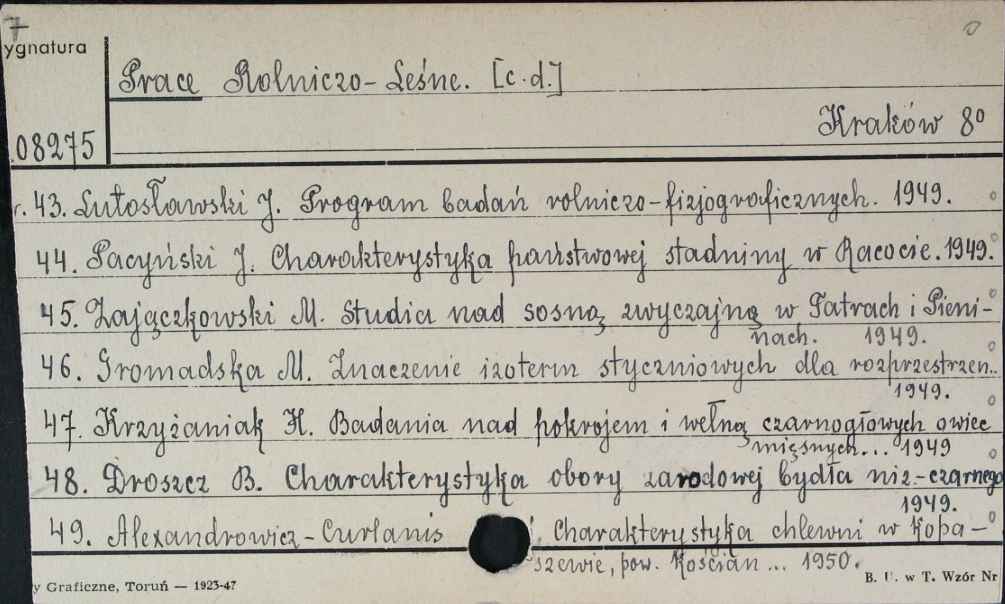 7
ygnatura
Prace Rolniczo-Leśne. [c.d.]
Kraków 8°
08275
r. 43. Lutosławski J. Program badań rolniczo-fizjograficznych. 1949.
44. Pacyński J. Charakterystyka państwowej stadniny w Racocie. 1949.
45. Zajączkowski M. Studia nad sosną zwyczajną w Tatrach i Pieni-
nach. 1949.
46. Gromadska M. Znaczenie izoterm styczniowych dla rozprzestrzen..
1949.
47. Krzyżaniak H. Badania nad pokrojem i wełną czarnogłowych owiec
mięsnych... 1949
48. Droszcz B. Charakterystyka obory zarodowej bydła niz.-czarnego
1949.
49. Alexandrowicz-Curlanis Charakterystyka chlewni w Kopa-
szewie, pow. Kościan ... 1950.
y Graficzne, Toruń — 1923-47
B. U. w T. Wzór Nr